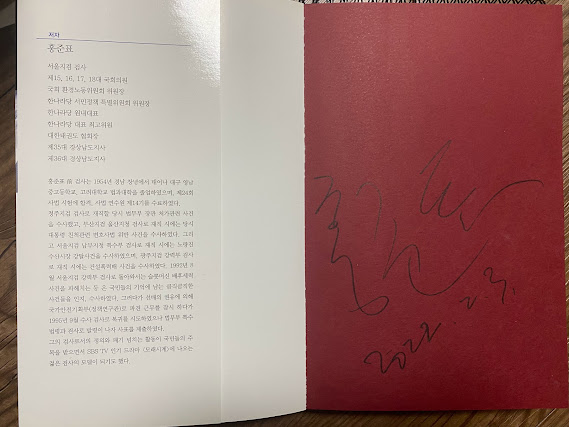 저자
홍준표
서울지검 검사
제15, 16, 17, 18대 국회의원
국회 환경노동위원회 위원장
한나라당 서민정책 특별위원회 위원장
한나라당 원내대표
한나라당 대표 최고위원
대한태권도 협회장
제35대 경상남도지사
제36대 경상남도지사
홍준표 前 검사는 1954년 경남 창녕에서 태어나 대구 영남
중고등학교, 고려대학교 법과대학을 졸업하였으며, 제24회
사법 시험에 합격, 사법 연수원 제14기를 수료하였다.
청주지검 검사로 재직할 당시 법무부 장관 처가관련 사건
을 수사했고, 부산지검 울산지청 검사로 재직 시에는 당시
대통령 친척관련 변호사법 위반 사건을 수사하였다. 그리
고 서울지검 남부지청 특수부 검사로 재직 시에는 노량진
수산시장 강탈사건을 수사하였으며, 광주지검 강력부 검사
로 재직 시에는 건설폭력배 사건을 수사하였다. 1992년 8
월 서울지검 강력부 검사로 돌아와서는 슬롯머신 배후세력
사건을 파헤치는 등 온 국민들의 기억에 남는 굵직굵직한
사건들을 인지, 수사하였다. 그러다가 전례의 권유에 의해
국가안전기획부(정책연구관)로 파견 근무를 갔다
1995년 9월 수사 검사로 복귀를 시도하였으나 법무부 특수
법령과 검사로 발령이 나자 사표를 제출하였다.
그의 검사로서의 정의와 패기 넘치는 활동이 국민들의 주
목을 받으면서 SBS TV 인기 드라마 〈모래시계〉에 나오는
젊은 검사의 모델이 되기도 했다.
홍준표
2022. 2. 3.